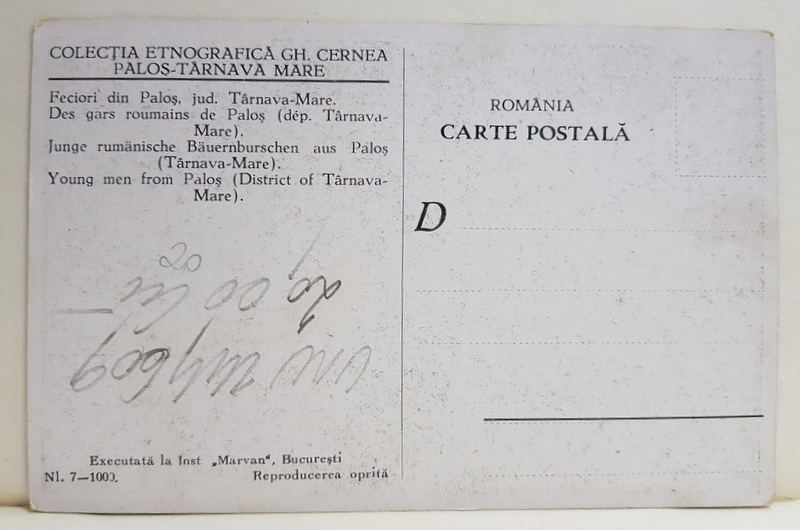 COLECȚIA ETNOGRAFICĂ GH. CERNEA
PALOȘ-TÂRNAVA MARE
Feciori din Paloș, jud. Târnava-Mare.
Des gars roumains de Paloș (dép. Târnava-
Mare).
Junge rumänische Bäuernburschen aus Paloș
(Târnava-Mare).
Young men from Paloș (District of Târnava-
Mare).
ROMÂNIA
CARTE POSTALĂ
D
20,00 lei
Executată la Inst „Marvan", București
Nl. 7—1000.
Reproducerea oprită